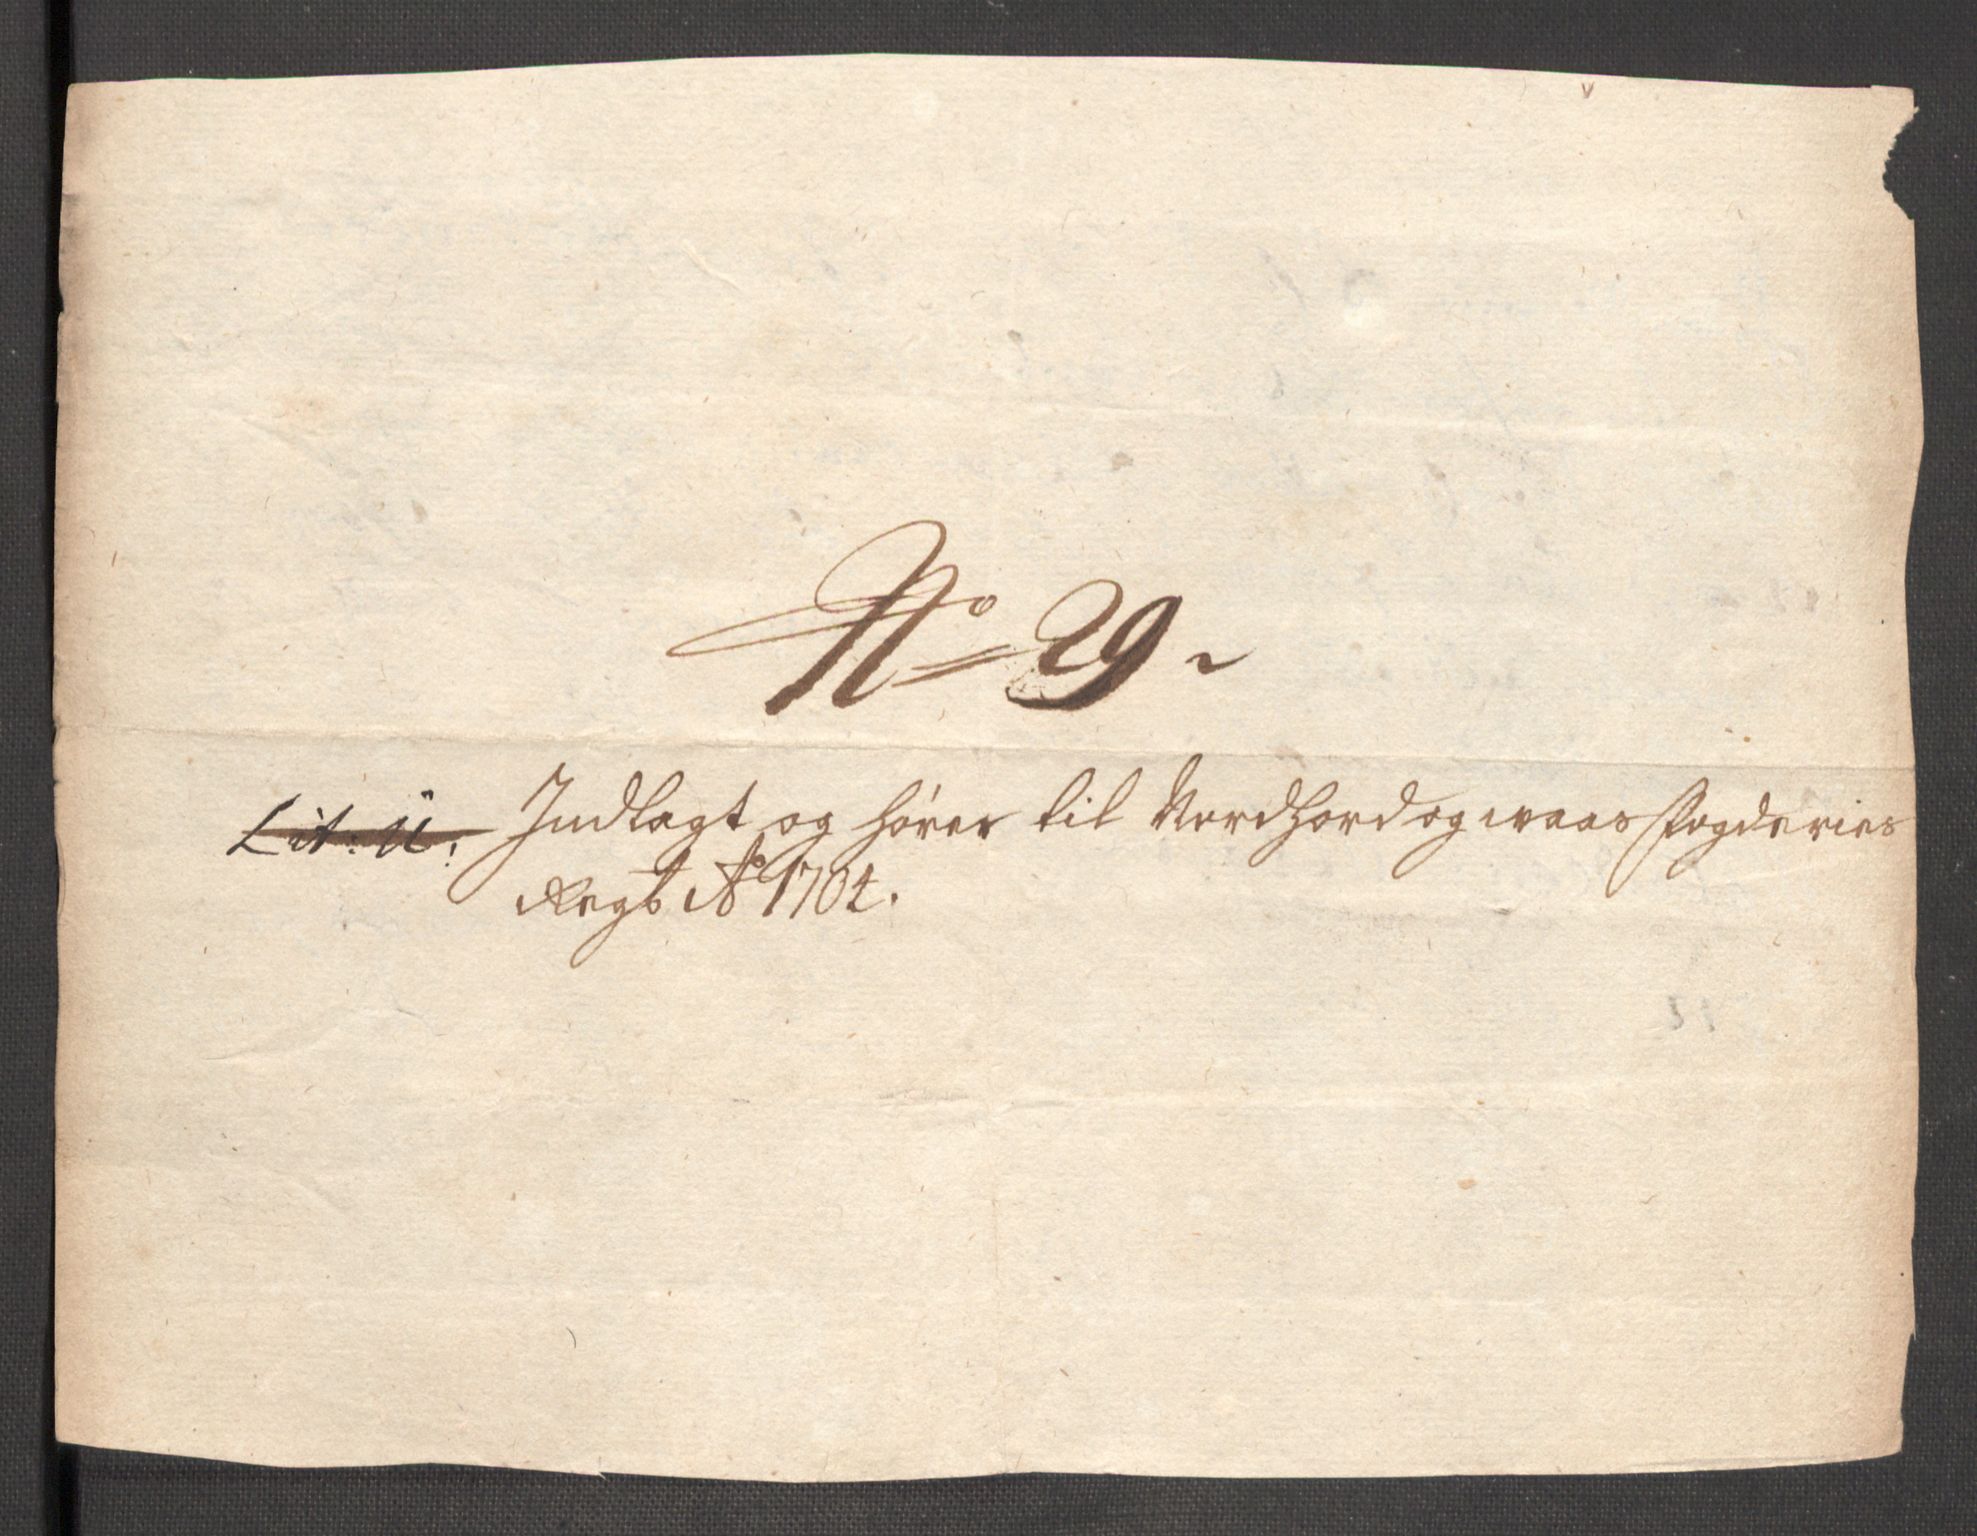 No 29
Lit: U: Indlagt og hører til Nordhord og waas fogderies
Regb Ao 1704.